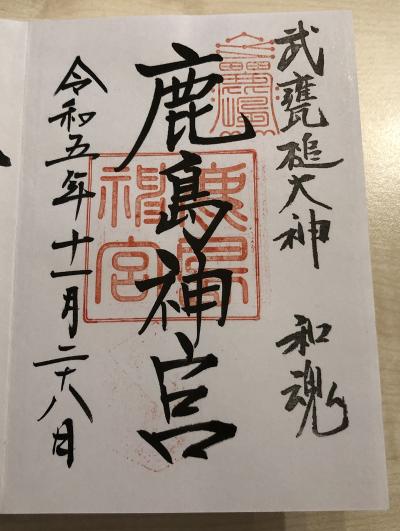 武甕槌大神 和魂
鹿島神宮
鹿島神宮
令和五年十一月二十八日